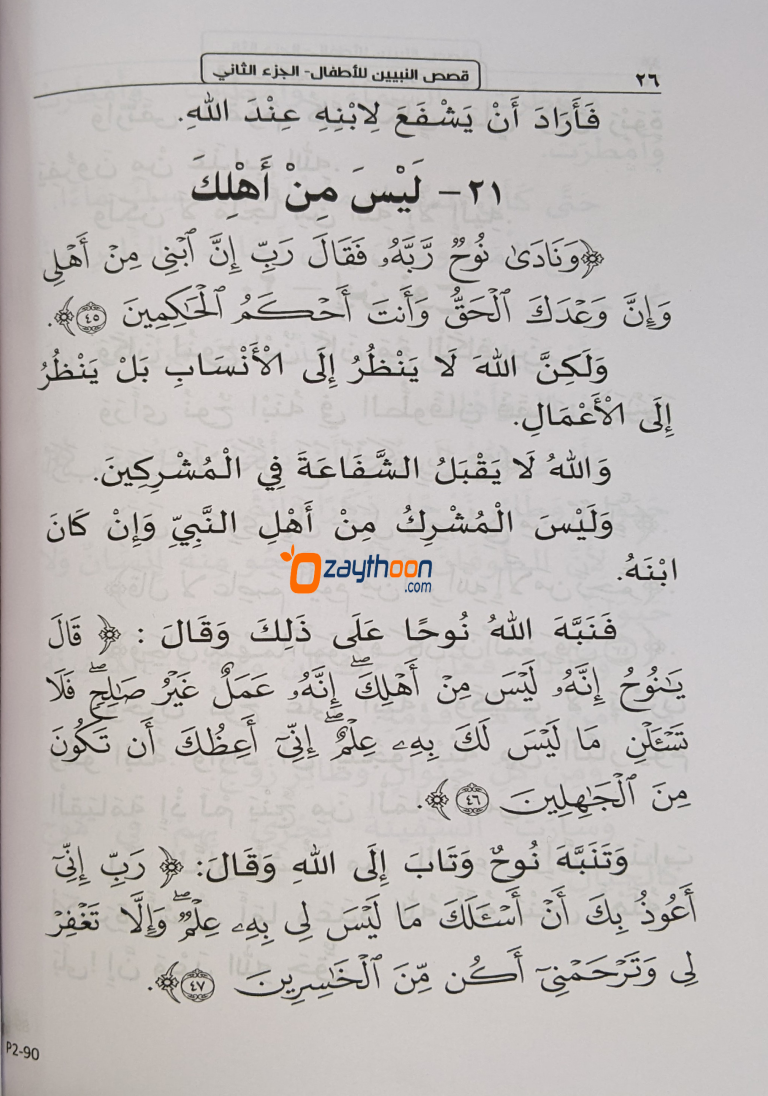 ٢٦
قصص النبيين للأطفال- الجزء الثاني
فَأَرَادَ أَنْ يَشْفَعَ لِابْنِهِ عِنْدَ اللهِ.
٢١- لَيْسَ مِنْ أَهْلِكَ
﴿وَنَادَىٰ نُوحٌ رَّبَّهُۥ فَقَالَ رَبِّ إِنَّ ٱبْنِى مِنْ أَهْلِى
وَإِنَّ وَعْدَكَ ٱلْحَقُّ وَأَنتَ أَحْكَمُ ٱلْحَٰكِمِينَ ٤٥﴾.
وَلَكِنَّ اللهَ لَا يَنْظُرُ إِلَى الْأَنْسَابِ بَلْ يَنْظُرُ
إِلَى الْأَعْمَالِ.
وَاللهُ لَا يَقْبَلُ الشَّفَاعَةَ فِي الْمُشْرِكِينَ.
وَلَيْسَ الْمُشْرِكُ مِنْ أَهْلِ النَّبِيِّ وَإِنْ كَانَ
ابْنَهُ.
zaythoon
.com
فَنَبَّهَ اللهُ نُوحًا عَلَى ذَلِكَ وَقَالَ : ﴿ قَالَ
يَٰنُوحُ إِنَّهُۥ لَيْسَ مِنْ أَهْلِكَ ۖ إِنَّهُۥ عَمَلٌ غَيْرُ صَٰلِحٍ ۖ فَلَا
تَسْـَٔلْنِ مَا لَيْسَ لَكَ بِهِۦ عِلْمٌ ۖ إِنِّىٓ أَعِظُكَ أَن تَكُونَ
مِنَ ٱلْجَٰهِلِينَ ٤٦﴾.
وَتَنَبَّهَ نُوحٌ وَتَابَ إِلَى اللهِ وَقَالَ: ﴿ رَبِّ إِنِّىٓ
أَعُوذُ بِكَ أَنْ أَسْـَٔلَكَ مَا لَيْسَ لِى بِهِۦ عِلْمٌ ۖ وَإِلَّا تَغْفِرْ
لِى وَتَرْحَمْنِىٓ أَكُن مِّنَ ٱلْخَٰسِرِينَ ٤٧﴾.
P2-90